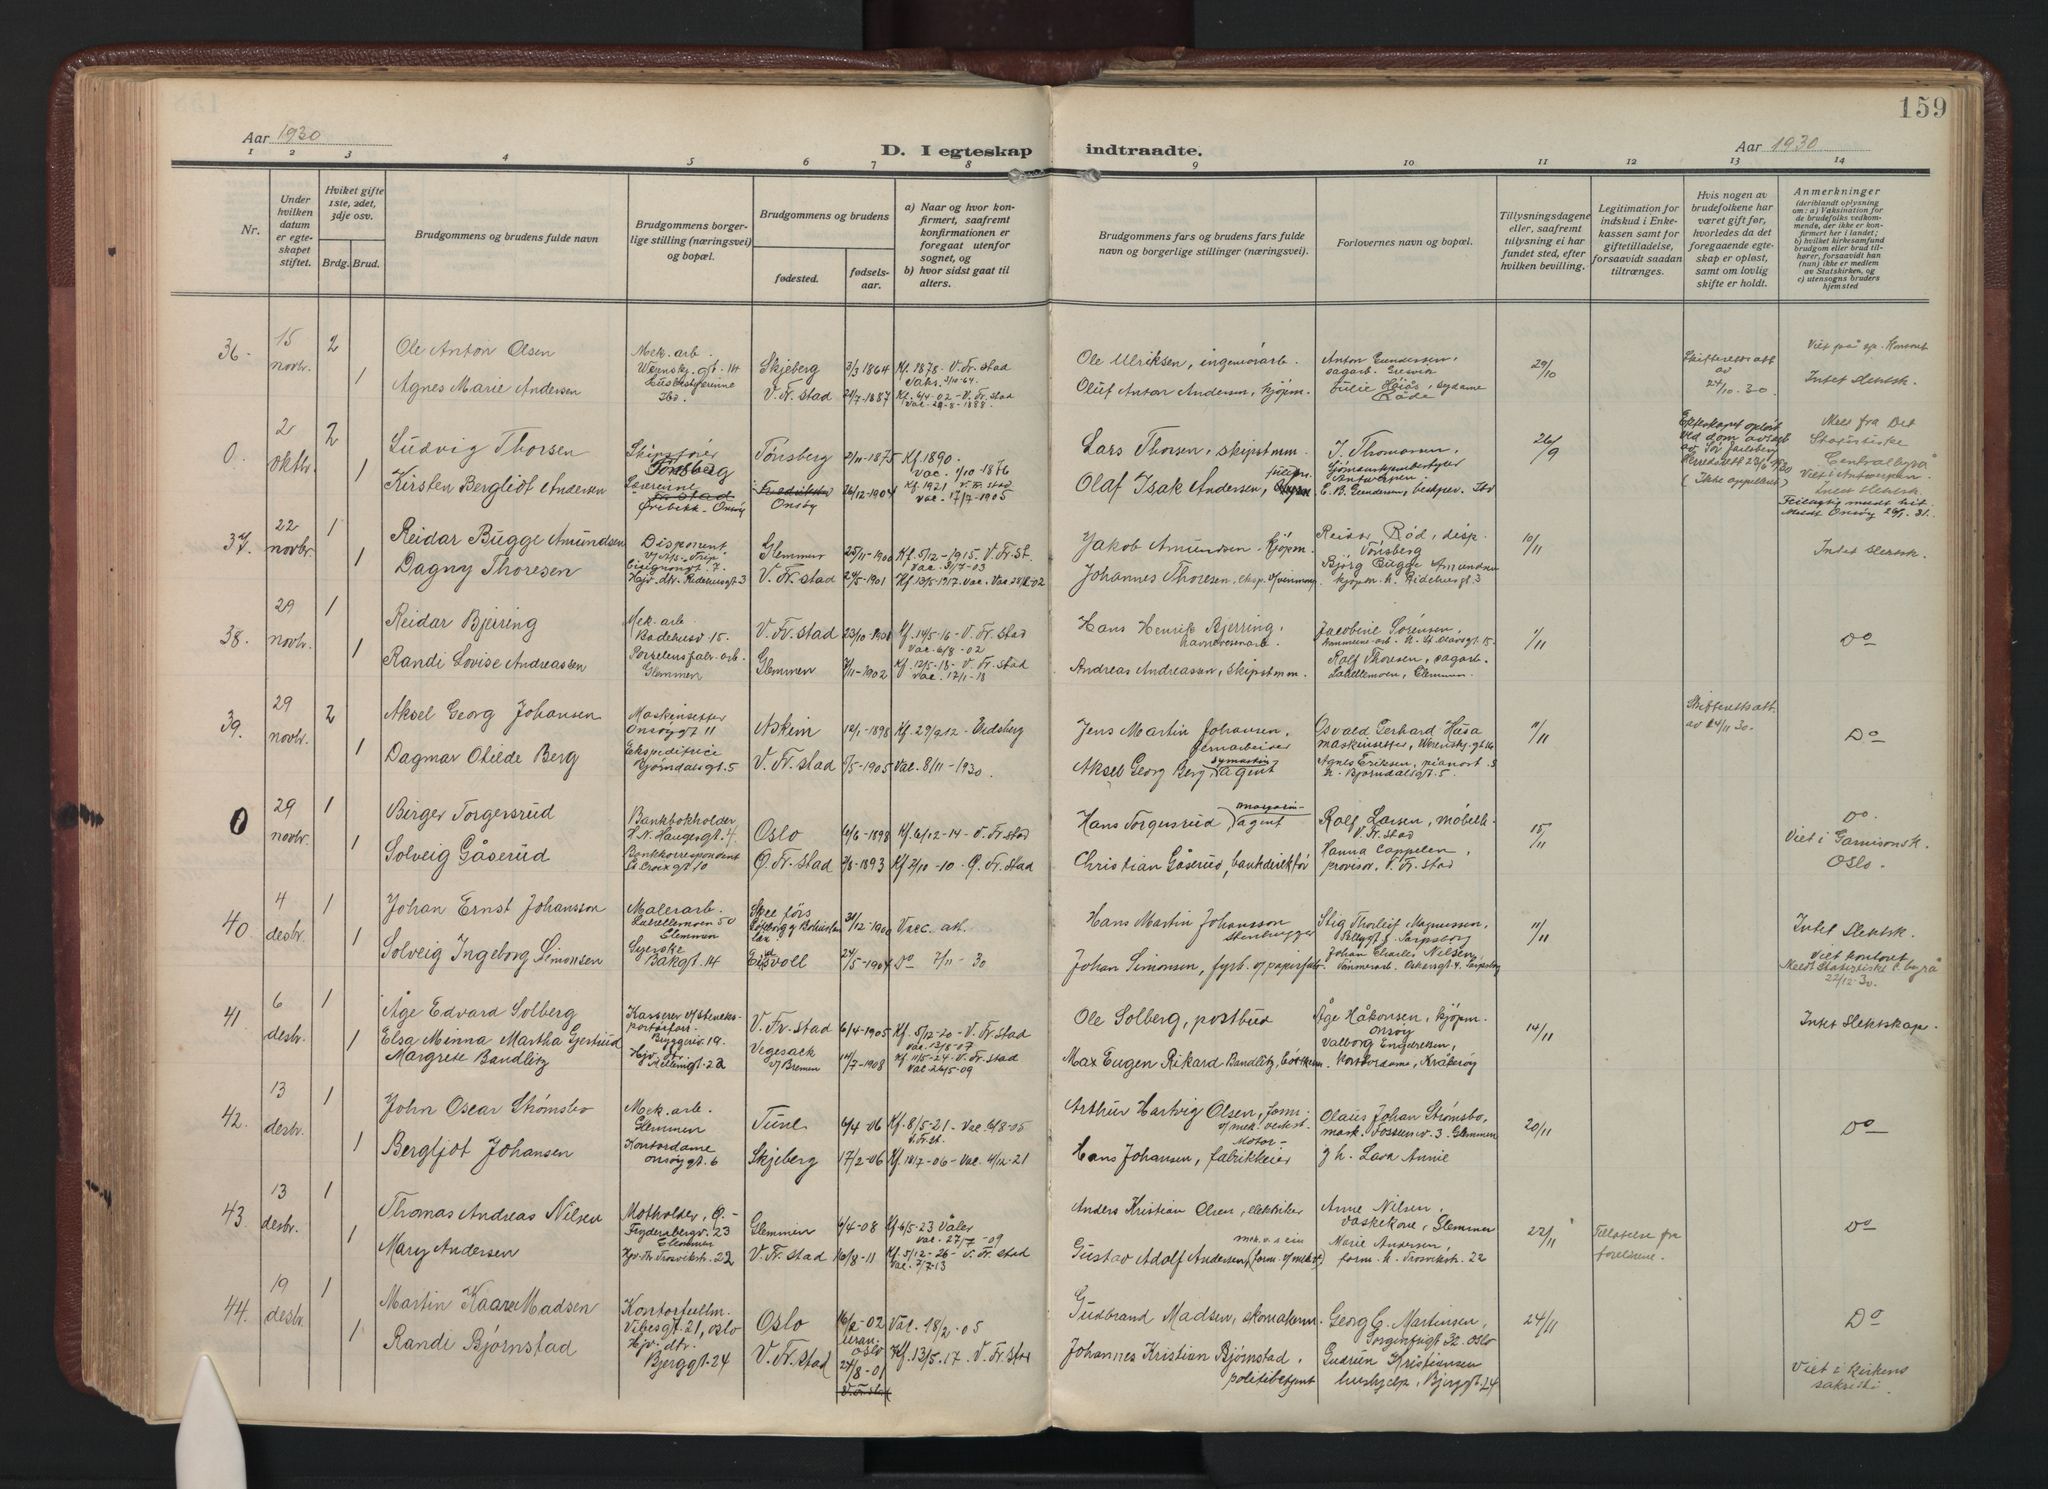 159
Aar 1930
D. I egteskap indtraadte.
Aar 1930
1 2 3 4 5 6 7 8 9 10 11 12 13 14
Nr.
Under hvilken datum er egteskapet stiftet.
Hviket gifte 1ste, 2det, 3dje osv.
Brdg. Brud.
Brudgommens og brudens fulde navn
Brudgommens borgerlige stilling (næringsvei) og bopæl.
Brudgommens og brudens
fødested.
fødselsaar.
a) Naar og hvor konfirmert, saafremt konfirmationen er foregaat utenfor sognet, og
b) hvor sidst gaat til alters.
Brudgommens fars og brudens fars fulde navn og borgerlige stillinger (næringsvei).
Forlovernes navn og bopæl.
Tillysningsdagene eller, saafremt tillysning ei har fundet sted, efter hvilken bevilling.
Legitimation for indskud i Enkekassen samt for giftetilladelse, forsaavidt saadan tiltrænges.
Hvis nogen av brudefolkene har været gift før, hvorledes da det foregaaende egteskap er opløst, samt om lovlig skifte er holdt.
Anmerkninger
(deriblandt oplysning om: a) Vaksination for de brudefolks vedkommende, der ikke er konfirmert her i landet; b) hvilket kirkesamfund brudgom eller brud tilhører, forsaavidt han (hun) ikke er medlem av Statskirken, og c) utensogns bruders hjemsted
36. 15 novbr. 2 Ole Anton Olsen Mek. arb. Wernskj. gt. 14 Skjeberg 3/3 1864 Kf. 1878 - V. Fr. stad Vaks. 3/10-64. Ole Ulriksen, ingeniørarb. Anton Gundersen, sagarb. Gresvik 29/10 Skifteretts att av 24/10. 30 Viet på sp. Kontoret
1 Agnes Marie Andersen Husbestyrerinne Ibd. V. Fr. stad 24/7-1887 Kf. 6/4-02 - V. Fr. stad Vac. 29-8-1888. Oluf Anton Andersen, kjøpm. Julie Høiås, sydame Råde Intet slektsk.
0. 2 oktbr. 2 Ludvig Thorsen Skipsfører Tønsberg Tønsberg 2/11-1875 Kf. 1890. Vac. 1/10 1876 Lars Thorsen, skipstmm. J. Thomassen, Sjømannskembestyrer Antwerpen 26/9 Ekteskapet opløst ved dom avsagt av Sør Jarlsberg Herredsrett 23/6 1920 (Ikke appellert) Meld. fra Det Statistiske Centralbyrå Viet i Antwerpen. Intet slektsk.
1 Kirsten Bergliot Andersen Lærerinne Fr stad Ørebekk - Onsøy Fredrikstad Onsøy 26/12-1904 Kf. 1921 V. Fr. stad Vac. 17/7-1905 Olaf Isak Andersen, E. B. Gundersen, bestyrer. Ibd Feilagtig meldt hit Meldt Onsøy 26/1. 31.
37. 22 novbr. 1 Reidar Bugge Amundsen Disponent Cicignongt. 7. Glemmen 25/11-1900 Kf. 5/12-1915. V. Fr. st. Vac. 3/7-03 Jakob Amundsen - kjøpm. Reidar Rød, disp. Tønsberg 10/11 Intet slektsk.
1 Dagny Thoresen Hjv. dtr. Ridehusgt 3 V. Fr. stad 24/5-1901 Kf. 13/5-1917. Johannes Thoresen, eksp. v/vinmon. Bjørg Bugge Amundsen kjøpm. h. Ridehusgt. 3
38. 29 novbr. 1 Reidar Bjerring Mek. arb. Badehusv 15. V. Fr. stad 23/10-1901 Kf. 14/5-16 - V. Fr. stad Vac. 6/8-02 Hans Henrik Bjerring, havnevesenarb. Jacobine Sørensen, kommune-arb. h. St. Olavsgt 15. 1/11 Do
1 Randi Lovise Andreassen Porselensfabr. arb. Glemmen Glemmen 7/11-1902 Kf. 12/5-18 - V. Fr. stad Vac. 17/1-18 Andreas Andreassen, skipstmm. Rolf Thoresen, sagarb. Labellemoen, Glemmen.
39. 29 novbr. 2 Aksel Georg Johansen Maskinsetter Onsøygt 11 Askim 12/1-1898 Kf. 29/9 12 - Eidsberg Jens Martin Johansen, jernarbeider Osvald Gerhard Husa maskinsetter, Werenskj. gt 16 11/11 Skifteretts att. av 24/11 30. Do
1 Dagmar Otilde Berg Ekspeditrice Bjørndalsgt. 5 V. Fr. stad 7/5-1905 Vac. 8/11-1930. Aksel Georg Berg, symaskin agent Agnes Eriksen, pianort. s h. Bjørndalsgt. 5.
0 29 novbr. 1 Birger Torgersrud Bankbokholder H. N. Haugesgt. 4 Oslo 6/6-1898 Kf. 6/12-14 - V. Fr. stad Hans Torgersrud, margarin-agent Rolf Larsen, møbelh. V. Fr. stad 15/11 Do. Viet i Garnisonsk. Oslo.
1 Solveig Gåserud Bankkorrespondent St. Croixgt 10 Ø. Fr. stad 7/8-1893 Kf. 2/10-10 - Ø. Fr. stad Christian Gåserud, bankdirektør Hanna Cappelen, provisor, V. Fr. stad
40. 4 desbr. 1 Johan Ernst Johansson Malerarb. Labellemoen 50 Glemmen Skee förs. Göteborg og Bohuslän 31/12-1900 Vac. att. Hans Martin Johansson stenhugger Stig Thorleif Magnussen, Sarpsborg 11/11 Intet slektsk.
1 Solveig Ingeborg Simonsen Syerske Bakgt. 14 Eidsvoll 24/5-1904 Do 7/11-30 Johan Simonsen, fyrb. v/papirfabr. Johan Charles Nilsen, Tømmerarb. Sarpsborg Viet kontoret Meldt Statistiske c. byrå 22/12-30.
41. 6 desbr. 1 Åge Edvard Solberg Kasserer v/stenekspportørforr. Bryggeriv. 19. V. Fr. stad 6/4-1905 Kf. 5/12-20 - V. Fr. stad Vac. 13/8-07 Ole Solberg, postbud Åge Håkonsen, kjøpm. Onsøy 14/11 Intet slektskap.
1 Elsa Minna Martha Gjertrud Margrete Bandlitz Hjv. dtr. Vegesack v/ Bremen 14/7-1908 Kf. 11/5-24 - V. Fr. stad Vac. 26/5-09 Max Eugen Rikard Bandlitz, Valborg Engebretsen, Kontordame, Kråkerøy
42. 13 desbr. 1 John Oscar Strømsbo Mek. arb. Glemmen Tune 6/4-06 Kf. 8/5-21 - Vac. 6/8-05 V. Fr. st. Arthur Hartvig Olsen, form. v/mek. verkst. Olaus Johan Strømsbo, mask. Fossumv. 3. Glemmen 20/11 Do
1 Bergljot Johansen Kontordame Onsøygt. 6 Skjeberg 17/2-06 Kf. 18/7-06 - Vac. 4/12-21 Hans Johansen, Motor-fabrikkeier g. h. Lava Annie
43. 13 desbr. 1 Thomas Andreas Nilsen Motholder, Ø- Frydenbergv. 23 Glemmen Glemmen 6/4-08 Kf. 6/5-23 Våler Vac. 27/7-09 Anders Kristian Olsen, elektriker Anne Nilsen, vaskekone, Glemmen 22/11 Tillatelse fra foreldrene. Do
1 Mary Andersen Hjv. Th. Trosvikstr. 22 V. Fr. stad 10/8-11 Kf. 5/12-26 - V. Fr. stad Vac. 7/7-13 Gustav Adolf Andersen (form. v/mek. v) Marie Andersen, form. h. Trosvikstr. 22
44. 19 desbr. 1 Martin Kaare Madsen Kontorfullm. Vibesgt. 21, Oslo Oslo 16/2-02 Vac. 18/2-05 Gudbrand Madsen, skomakerm. Georg C. Martinsen, Sorgenfrigt 32. Oslo 24/11 Do
1 Randi Bjørnstad Hjv. dtr. Bjerggt. 24 V. Fr. stad 24/8-01 Kf. 13/5. 17. V. Fr. stad Johannes Kristian Bjørnstad, politibetjent Gudrun Kristiansen hushjelp, Bjerggt. 24 Viet i kirkens sakristi